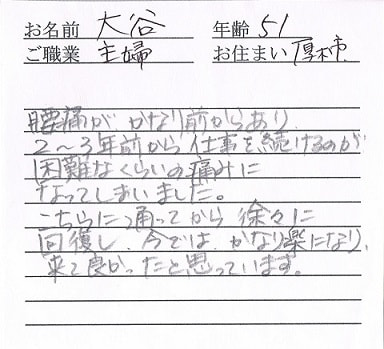 お名前 大谷 年齢 51
ご職業 主婦 お住まい 厚木市
腰痛が かなり前からあり、
2～3年前から 仕事を続けるのが
困難なくらいの痛みに
なってしまいました。
こちらに通ってから 徐々に
回復し、今では かなり楽になり、
来て良かったと思っています。